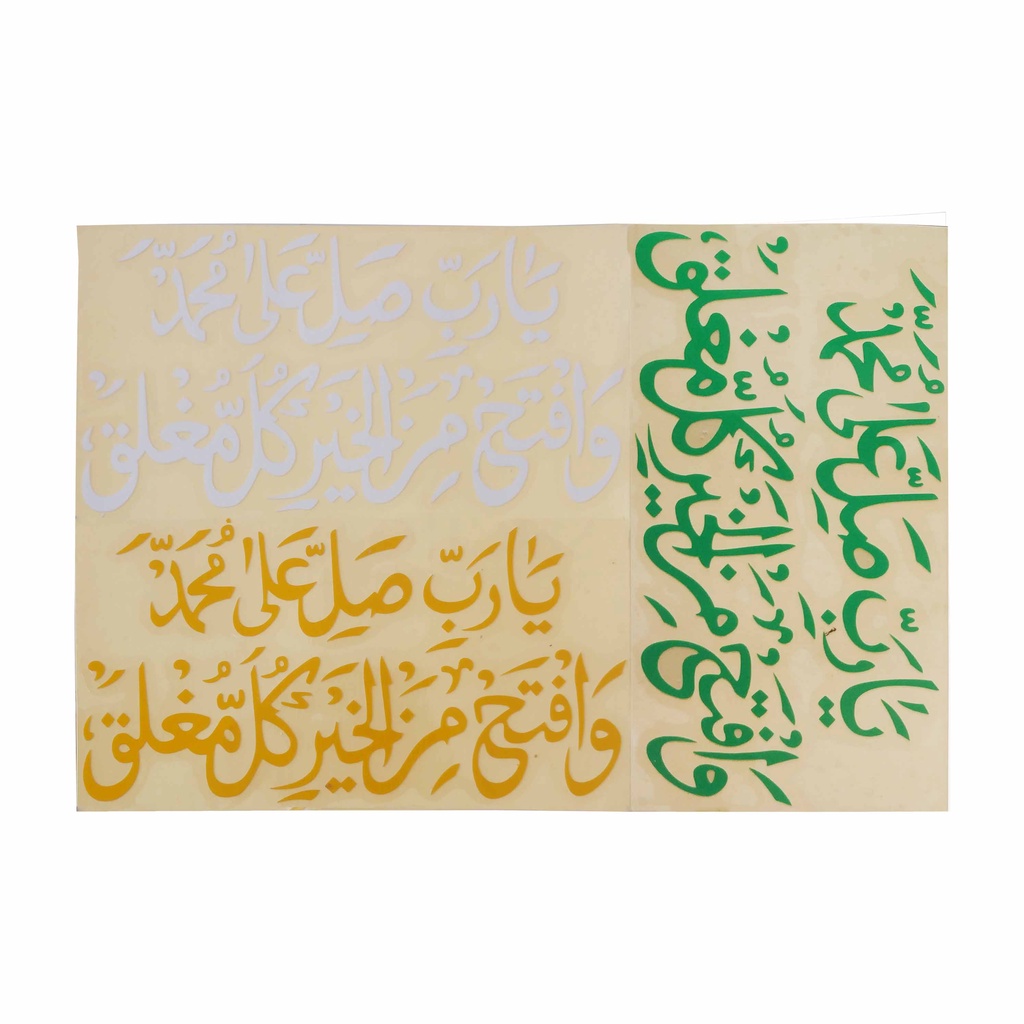 يَا رَبِّ صَلِّ عَلَىٰ مُحَمَّدْ
وَافْتَحْ مِنَ الْخَيْرِ كُلَّ مُغْلَقْ
يَا رَبِّ صَلِّ عَلَىٰ مُحَمَّدْ
وَافْتَحْ مِنَ الْخَيْرِ كُلَّ مُغْلَقْ
يَا رَبِّ صَلِّ عَلَىٰ مُحَمَّدْ
وَافْتَحْ مِنَ الْخَيْرِ كُلَّ مُغْلَقْ